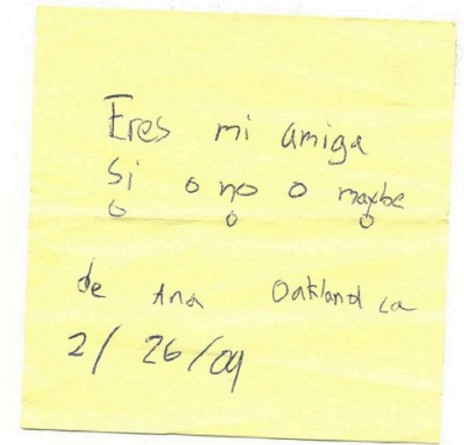 Eres mi amiga
Si o no o maybe
de Ana Oakland ca
2/26/09